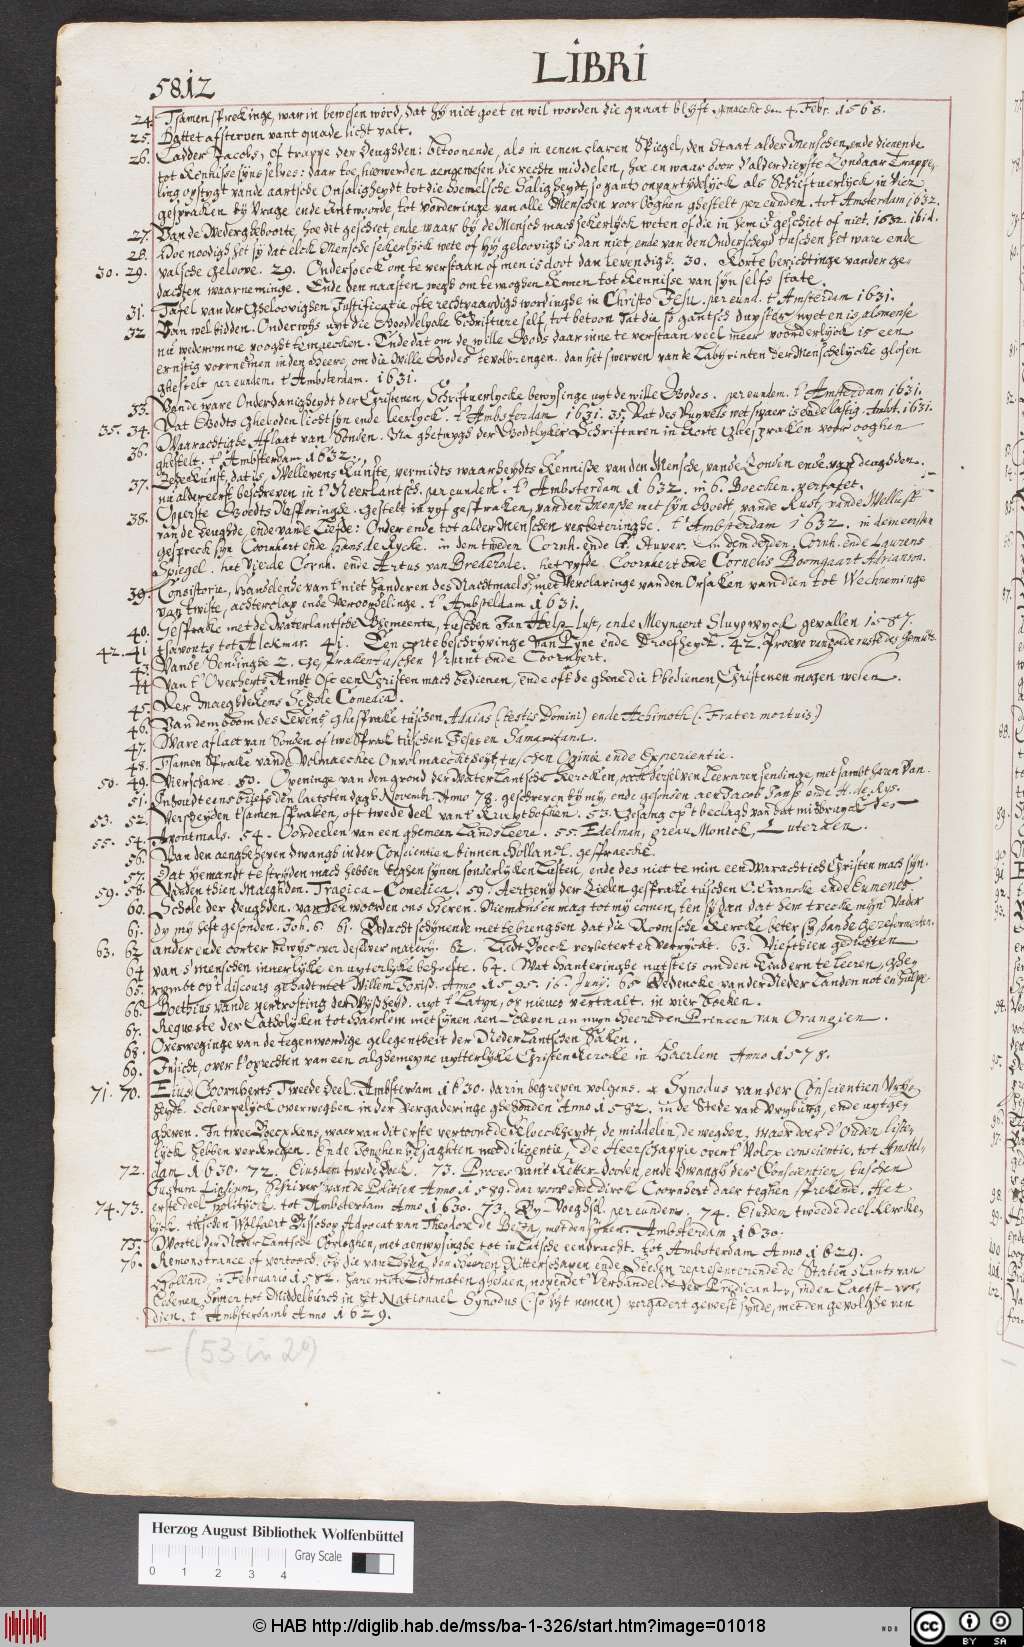 LIBRI
5812
24. Tsamensprekinge, war in bewesen word, dat hy niet goet en wil worden die quaat blyft. gemaeckt den 4. Febr. 1568.
25. Dattet afsterven vant quade licht valt.
26. Ladder Jacobs, of trappe der Deughden: betoonende, als in eenen claren Spiegel, den Staat alder Menschen, ende dienende
tot Kennisse syns selves: daar toe, hier werden aengewesen die rechte middelen, hoe en waar door d'alderdiepste Zondaar Trappe-
ling opstygt vande aartsche Onsaligheydt tot die Hemelsche Saligheydt, so gantz onpartydelyck als Schriftuerlyck in vier
gespraken by Vrage ende Antwoorde, tot vorderinge van alle Menschen voor ooghen ghestelt per eundem. tot Amsterdam, 1632.
27. Van de Wedergheboorte, hoe die geschiet, ende waar by de Mensch mach sekerlyck weten of die in hem is geschiet of niet. 1632. ibid.
28. Hoe noodigh het sy dat elck Mensche sekerlyck wete of hy geloovigh is dan niet, ende van den Onderscheyd tusschen het ware ende
30. 29. valsche geloove. 29. Ondersoeck om te verstaan of men is doot dan levendigh. 30. Korte berichtinge vander ge-
dachten waarneminge. Ende den naasten wegh om te moghen komen tot Kennisse van syn selfs state.
31. Tafel van der Gheloovighen Justificatie ofte rechtvaardigh wordinghe in Christo Jesu. per eund. t'Amsterdam 1631.
32. Van wel bidden. Onderwys uyt die Gooddelycke Schrifture self, tot betoon dat die so gantsch duyster niet en is, alsmense
nu wederomme pooght te maecken. Ende dat om de wille Gods daar inne te verstaan veel meer vorderlyck is een
ernstig voornemen in den Heere, om die Wille Godes te volbrengen. dan het swerven van de Labyrinten der Menschelycke glosen
ghestelt per eundem. t'Ambsterdam. 1631.
33. Vande ware Onderdanigheydt der Christenen, Schriftuerlycke bewysinge uyt de wille Godes. per eundem. t'Amsterdam 1631.
35. 34. Dat Godts Gheboden licht syn ende leerlyck. t'Ambsterdam 1631. 35. Dat des Duyvels wet swaer is ende lastig. Ambst. 1631.
36. Waarachtighe Aflaat van Sonden. Na ghetuygh der Godtlyker Schrifturen in korte Ghespraken voor ooghen
ghestelt. t'Ambsterdam 1632.
37. Zedekunst, dat is, Wellevens Kunste, vermidts waarheydts Kennisse van den Mensche, vande Zonden ende van deughden.
nu aldereerst beschreven in t'Neerlantsch. per eundem. t'Ambsterdam 1632. in 6. Boecken. vervatet.
38. Opperste Goedts Nasporinghe. Gestelt in vyf gespraken, vanden Mensche met syn Godt, vande Rust, vande Wellust
van de deughde, ende vande Liefde: Onder ende tot alder Menschen verbeteringhe. t'Ambsterdam 1632. in dem ersten
gespreck syn Coornhert ende Hans de Rycke. in dem tweden Cornh. ende Cornh. ende Laurens
Spiegel. het Vierde Cornh. ende Artus van Brederode. het vyfde. Coornhert ende Cornelis Boomgaart Adrianson.
39. Consistorie, handelende van t'niet handeren des Nachtmaels, met Verclaringe vanden Orsaken van dien tot Wechneminge
van twiste, achterclap ende Veroordelinge. t'Ambsteldam 1631.
40. Gesprake met de Waterlantsche Gemeente, tusschen Jan Help Lust, ende Meynaert Sluypwyck gevallen 1587.
42. 41. tsavonts tot Alckmar. 41. Een corte beschryvinge van Pyne ende Droefheyt. 42. Proeve vanden rust des Gemüts.
43. Vande Sendinghe 2. Gespraken tusschen Vrunt ende Coornhert.
44. Van t'Overheyts Ambt Ofte een Christen mach bedienen, ende oft de ghene die t'bedienen, Christenen mogen wesen.
45. Der Maeghdekens Schole Comedia.
46. Van dem boom des Levens Ghesprake tusschen Adaias (testis Domini) ende Achimoth (Frater mortuis)
47. Ware aflaet van Sonden of twe Sprack tusschen Jesus en Samaritana.
48. Tsamen Sprake vande Volmaeckte Onvolmaecktheyt, tusschen Opinie ende Experientie.
50. 49. Vierschare. 50. Openinge van den grond der Waterlantsche Kercken, ook derselven Leeraren sendinge, met samt haren Ban.
51. Inhoudt eens briefs den laetsten dagh Novembr. Anno 78. geschreven by my, ende gesonden aen Jacob Jansz ende H. de Rys.
53. 52. Verscheyden t'samen spraken, oft twede deel van t'Kruythofken. 53. Gesang op t'beclagh van dat misbruyck des
55. 54. Avontmals. 54. Oordeelen van een ghemeen Landsleere. 55. Edelman, Greau Monick, Luteraen.
56. Van den aengheheven dwangh in der Conscientien binnen Hollandt. gesprecke.
57. Dat yemandt te stryden mach hebben teghen synen sonderlyken Lusten, ende des niet te min een Warachtich Christen mach syn.
59. 58. Vanden thien Maeghden. Tragica-Comedica. 59. Aertzeny der Zielen gesprake tusschen C. Crancke ende Eumenes.
60. Schole der Deughden. van den woorden ons Heren. Niemant en mag tot my comen, ten sy dan dat hem trecke mijn Vader
61. dy my heft gesonden. Joh. 6. 61. Bedacht schynende mette brenghen dat die Roomsche Kercke beter sy dan de Gereformeerden.
63. 62. ander ende corter bewys over deselver materij. 62. Liedt Boeck verbetert en Vermeert. 63. Vijfthien gedichten
64. van s'menschen innerlyke en uyterlyke behoefte. 64. Wat Hanteringhe nutst is om den Kindern te leeren, ghe-
65. rymbt op t'discours gehadt met Willem Jorisz. Anno 1595. 16. Junij. 65. Gedencke van der Neder Landen not en hulpe.
66. Boethius vande vertrosting der Wyssheyd. uyt t'Latyn, op nieues vertaalt. in vier boeken.
67. Requeste der Catholyken tot Haerlem met synen aen-cleven an myn Heere den Princen van Orangien.
68. Overweginge van de tegenwoordige gelegentheit der Nederlantschen Saken.
69. Insicht, over t'oprechten van een alghemeyne uytterlyke Christen Kercke in Haerlem Anno 1578.
71. 70. Ejusd. Coornherts Tweede Deel. Ambsterdam 1630. darin begrepen volgens. Synodus van der Conscientien Vrye-
heydt. Scherpelyck overweghen in der Vergaderinge ghehouden Anno 1582. in de Stede van Vryburg, ende uytge-
gheven. In twee Boeckens, waer van dit erste vertoont de Kloeckheydt, de middelen, de weghen, waer doer d'Ouden liste-
lyck hebben verkregen. Ende Jonghen bejaghten met diligentie, De Heerschappie over t'Volcx conscientie. tot Amstel-
72. dam 1630. 72. Eiusdem twede Deel. 73. Proces vant Ketter dooden, ende dwangh der Conscientien, tusschen
Justum Lipsium, Schriver van de Politien Anno 1589. dar voor, ende Dirck Coornhert daer teghen sprekende. Het
74. 73. erste deel politijck. tot Ambsterdam Anno 1630. 73. per eundem. 74. Eiusdem tweede deel Kercke-
lyck. tusschen Wolfaert Bisschop Advocat van Theodore de Beza, met den synen. Ambsterdam 1630.
75. Wortel der Nederlantsche Oorloghen, met aenwysinghe tot inlandsche eendracht. tot Ambsterdam Anno 1629.
76. Remonstrance of vertooch. by die van Leyden, den Heeren Ritterschapen ende Steden representerende de Staten s'Lants van
Holland, in Februario 1582. hare mede Lidtmaten ghedaen, nopende t'Verhandelde der Predicanten, inden Laetst-voor
Ledenen, Somer tot Middelburch in het Nationael Synodus (so syt nomen) vergadert geweest synde, met den gevolghe van
dien. t'Ambsterdamb Anno 1629.
— (53 in 2°)
Herzog August Bibliothek Wolfenbüttel
Gray Scale
0 1 2 3 4
© HAB http://diglib.hab.de/mss/ba-1-326/start.htm?image=01018
cc BY SA